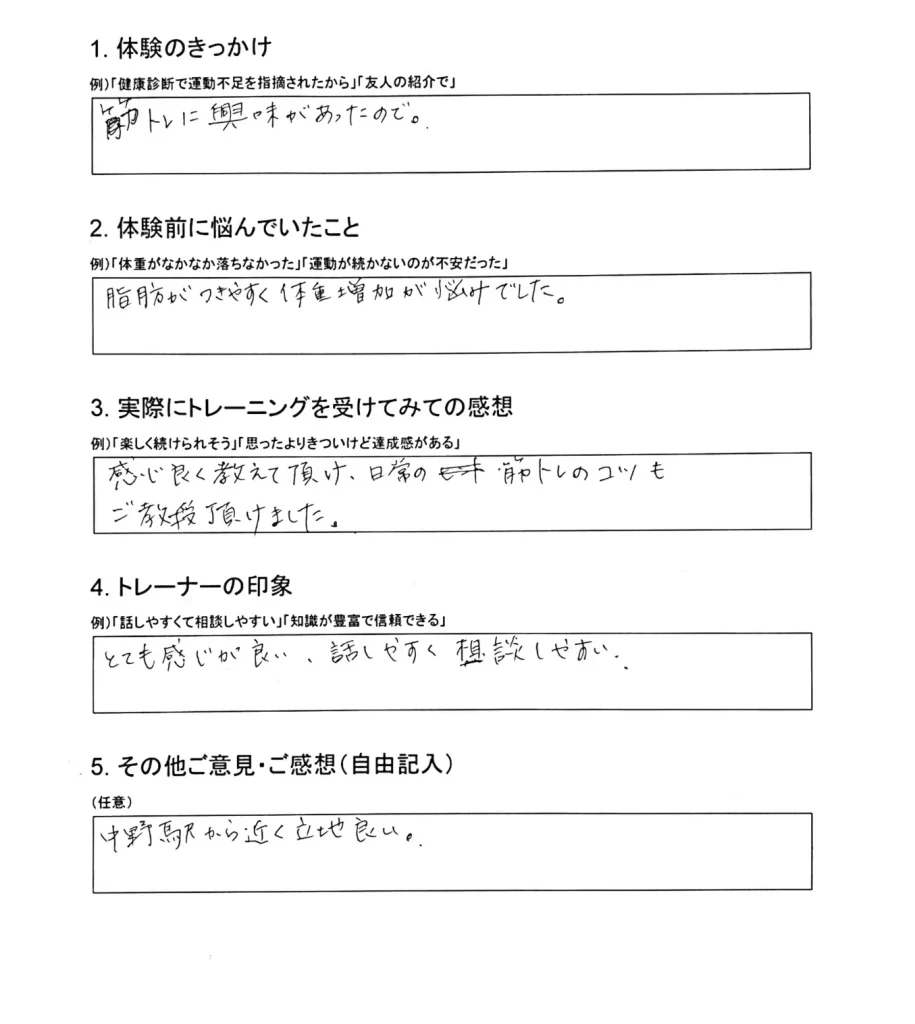 1. 体験のきっかけ
例)「健康診断で運動不足を指摘されたから」「友人の紹介で」
筋トレに興味があったので。
2. 体験前に悩んでいたこと
例)「体重がなかなか落ちなかった」「運動が続かないのが不安だった」
脂肪がつきやすく体重増加が悩みでした。
3. 実際にトレーニングを受けてみての感想
例)「楽しく続けられそう」「思ったよりきついけど達成感がある」
感じ良く教えて頂け、日常の筋トレのコツも
ご教授頂けました。
4. トレーナーの印象
例)「話しやすくて相談しやすい」「知識が豊富で信頼できる」
とても感じが良い、話しやすく相談しやすい.
5. その他ご意見・ご感想(自由記入)
(任意)
中野駅から近く立地良い。